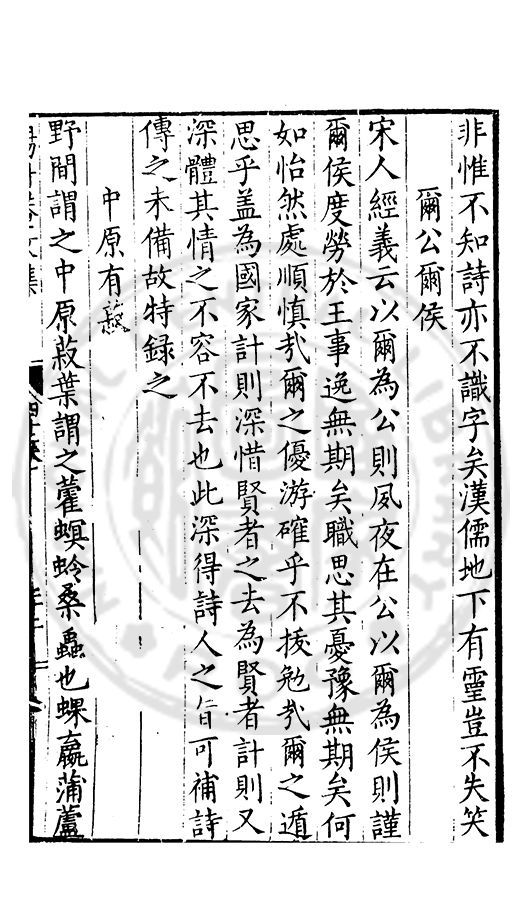 非惟不知詩亦不識字矣漢儒地下有靈豈不失笑
爾公爾侯
宋人經義云以爾為公則夙夜在公以爾為侯則謹
爾侯度勞於王事逸無期矣職思其憂豫無期矣何
如怡然處順慎㢤爾之優游確乎不拔勉㢤爾之遁
思乎盖為國家計則深惜賢者之去為賢者計則又
深體其情之不容不去也此深得詩人之旨可補詩
傳之未備故特録之
中原有菽
野間謂之中原菽葉謂之藿螟蛉桑蟲也蜾蠃蒲蘆